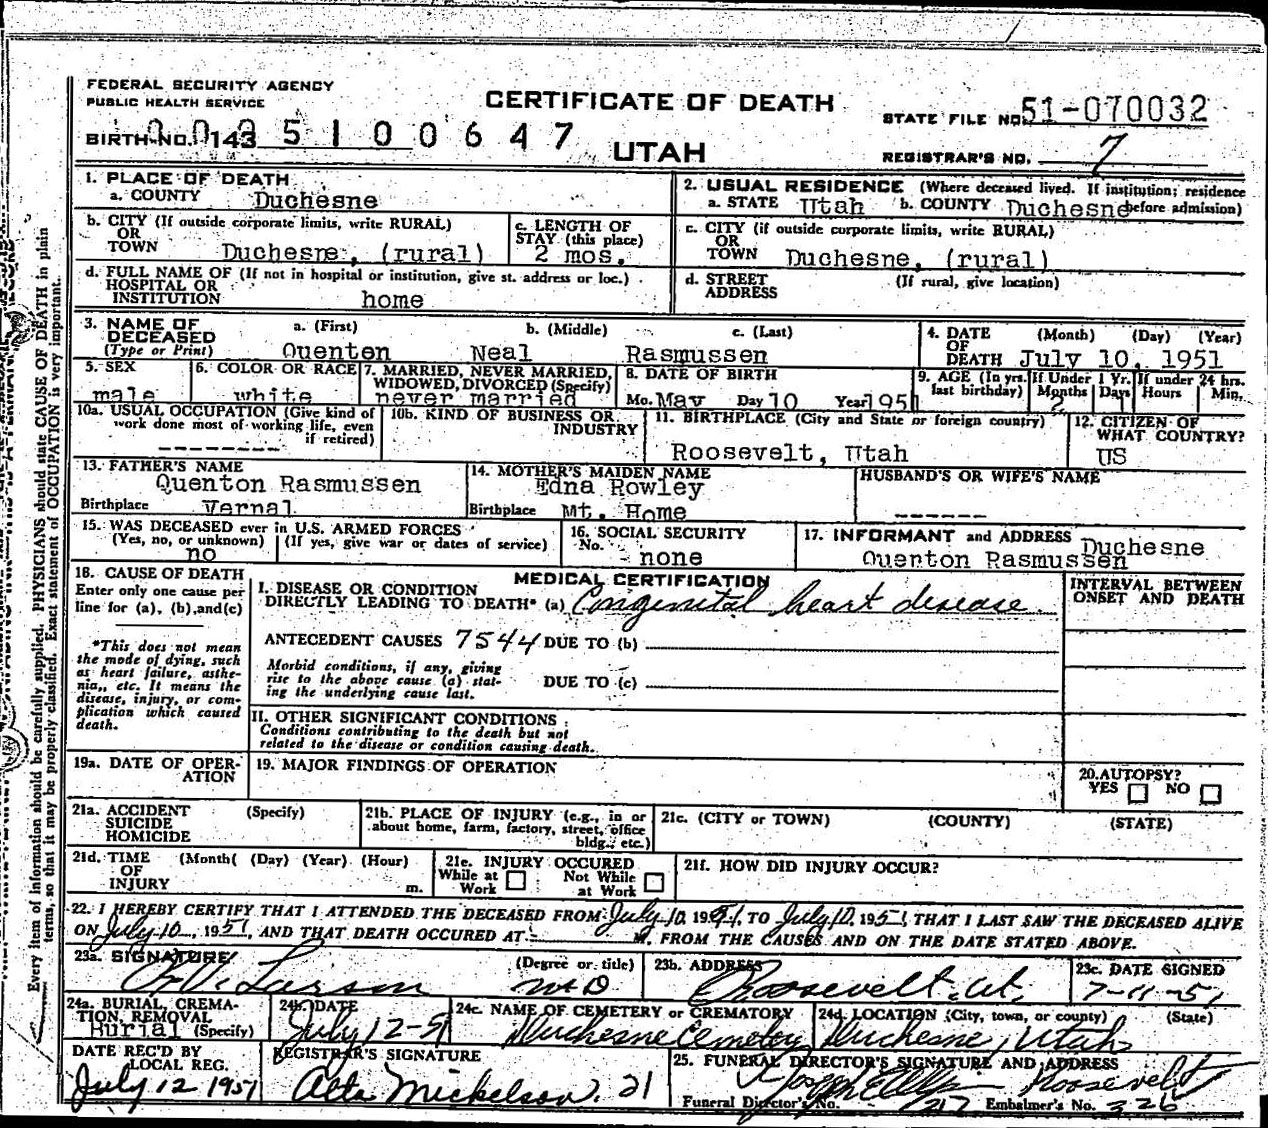 FEDERAL SECURITY AGENCY
PUBLIC HEALTH SERVICE
CERTIFICATE OF DEATH
STATE FILE NO. 51-070032
BIRTH NO. 143 5 1 0 0 6 4 7
UTAH
REGISTRAR'S NO. 7
1. PLACE OF DEATH
a. COUNTY Duchesne
2. USUAL RESIDENCE (Where deceased lived. If institution; residence
a. STATE Utah b. COUNTY Duchesne before admission)
b. CITY (If outside corporate limits, write RURAL)
OR
TOWN Duchesne, (rural)
c. LENGTH OF
STAY (this place)
2 mos.
c. CITY (if outside corporate limits, write RURAL)
OR
TOWN Duchesne, (rural)
d. FULL NAME OF (If not in hospital or institution, give st. address or loc.)
HOSPITAL OR
INSTITUTION home
d. STREET (If rural, give location)
ADDRESS
3. NAME OF a. (First) b. (Middle) c. (Last)
DECEASED
(Type or Print) Quenten Neal Rasmussen
4. DATE (Month) (Day) (Year)
OF
DEATH July 10, 1951
5. SEX
male
6. COLOR OR RACE
white
7. MARRIED, NEVER MARRIED,
WIDOWED, DIVORCED (Specify)
never married
8. DATE OF BIRTH
Mo. May Day 10 Year 1951
9. AGE (In yrs. If Under 1 Yr. If under 24 hrs.
last birthday) Months Days Hours Min.
10a. USUAL OCCUPATION (Give kind of
work done most of working life, even
if retired)
--------
10b. KIND OF BUSINESS OR
INDUSTRY
11. BIRTHPLACE (City and State or foreign country)
Roosevelt, Utah
12. CITIZEN OF
WHAT COUNTRY?
US
13. FATHER'S NAME
Quenton Rasmussen
Birthplace Vernal
14. MOTHER'S MAIDEN NAME
Edna Rowley
Birthplace Mt. Home
HUSBAND'S OR WIFE'S NAME
------
15. WAS DECEASED ever in U.S. ARMED FORCES
(Yes, no, or unknown) (If yes, give war or dates of service)
no
16. SOCIAL SECURITY
No. none
17. INFORMANT and ADDRESS Duchesne
Quenton Rasmussen
18. CAUSE OF DEATH
Enter only one cause per
line for (a), (b), and (c)
*This does not mean
the mode of dying, such
as heart failure, asthe-
nia,, etc. It means the
disease, injury, or com-
plication which caused
death.
MEDICAL CERTIFICATION
I. DISEASE OR CONDITION
DIRECTLY LEADING TO DEATH* (a) Congenital heart disease
ANTECEDENT CAUSES 7544 DUE TO (b)
Morbid conditions, if any, giving
rise to the above cause (a) stat-
ing the underlying cause last.
DUE TO (c)
II. OTHER SIGNIFICANT CONDITIONS
Conditions contributing to the death but not
related to the disease or condition causing death.
INTERVAL BETWEEN
ONSET AND DEATH
19a. DATE OF OPER-
ATION
19. MAJOR FINDINGS OF OPERATION
20. AUTOPSY?
YES NO
21a. ACCIDENT (Specify)
SUICIDE
HOMICIDE
21b. PLACE OF INJURY (e.g., in or
about home, farm, factory, street, office
bldg., etc.)
21c. (CITY or TOWN) (COUNTY) (STATE)
21d. TIME (Month( (Day) (Year) (Hour)
OF
INJURY m.
21e. INJURY OCCURED
While at Not While
Work at Work
21f. HOW DID INJURY OCCUR?
22. I HEREBY CERTIFY THAT I ATTENDED THE DECEASED FROM July 10, 1951, TO July 10, 1951, THAT I LAST SAW THE DECEASED ALIVE
ON July 10, 1951, AND THAT DEATH OCCURED AT M. FROM THE CAUSES AND ON THE DATE STATED ABOVE.
23a. SIGNATURE (Degree or title)
Larson MD
23b. ADDRESS
Roosevelt, Ut.
23c. DATE SIGNED
7-11-51
24a. BURIAL, CREMA-
TION, REMOVAL
Burial (Specify)
24b. DATE
July 12-51
24c. NAME OF CEMETERY or CREMATORY
Duchesne Cemetery
24d. LOCATION (City, town, or county) (State)
Duchesne, Utah
DATE REC'D BY
LOCAL REG.
July 12 1951
REGISTRAR'S SIGNATURE
Alta Mickelson. 21
25. FUNERAL DIRECTOR'S SIGNATURE AND ADDRESS
Roosevelt
Funeral Director's No. 217 Embalmer's No. 326
Every item of information should be carefully supplied. PHYSICIANS should state CAUSE OF DEATH in plain
terms, so that it may be properly classified. Exact statement of OCCUPATION is very important.